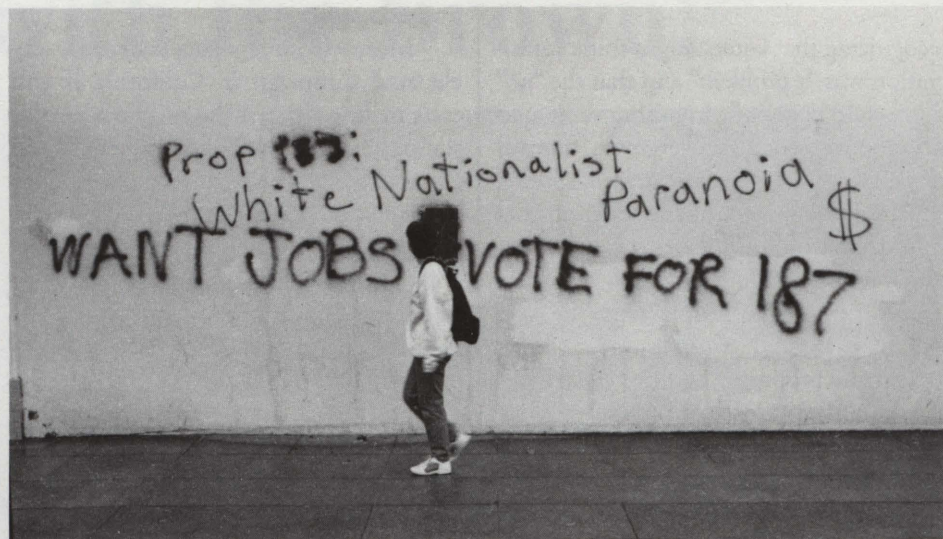 Prop 187:
White Nationalist
Paranoia $
WANT JOBS VOTE FOR 187